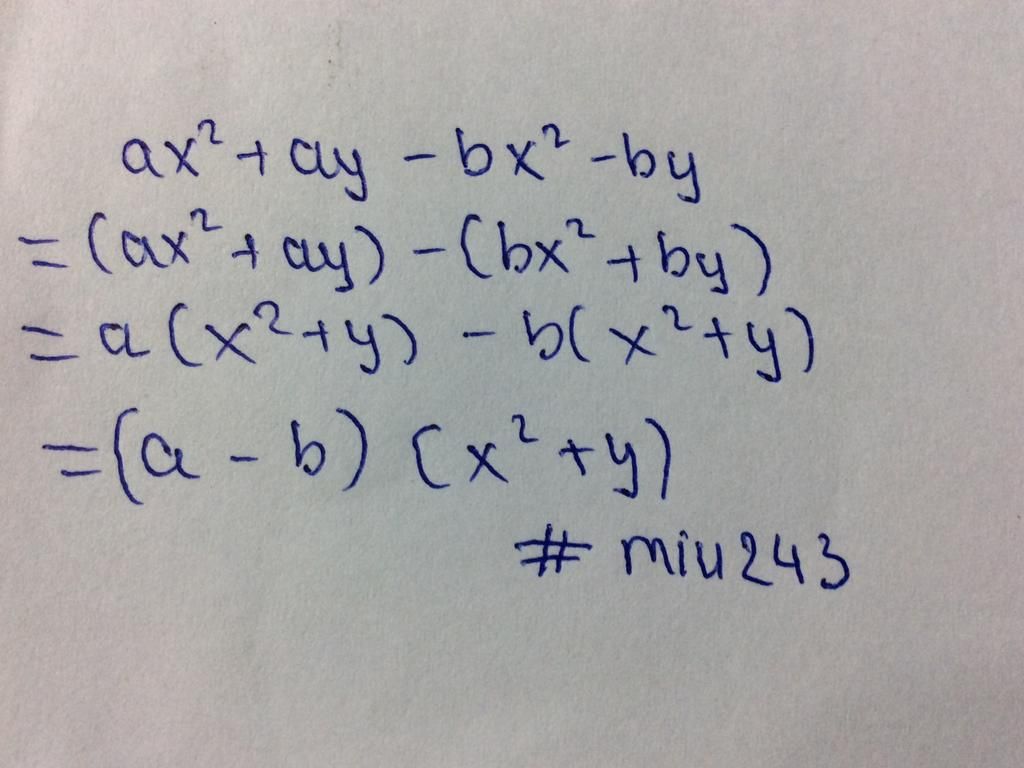 ax² + ay - bx² - by
= (ax² + ay) - (bx² + by)
= a(x² + y) - b(x² + y)
= (a - b) (x² + y)
# miu243